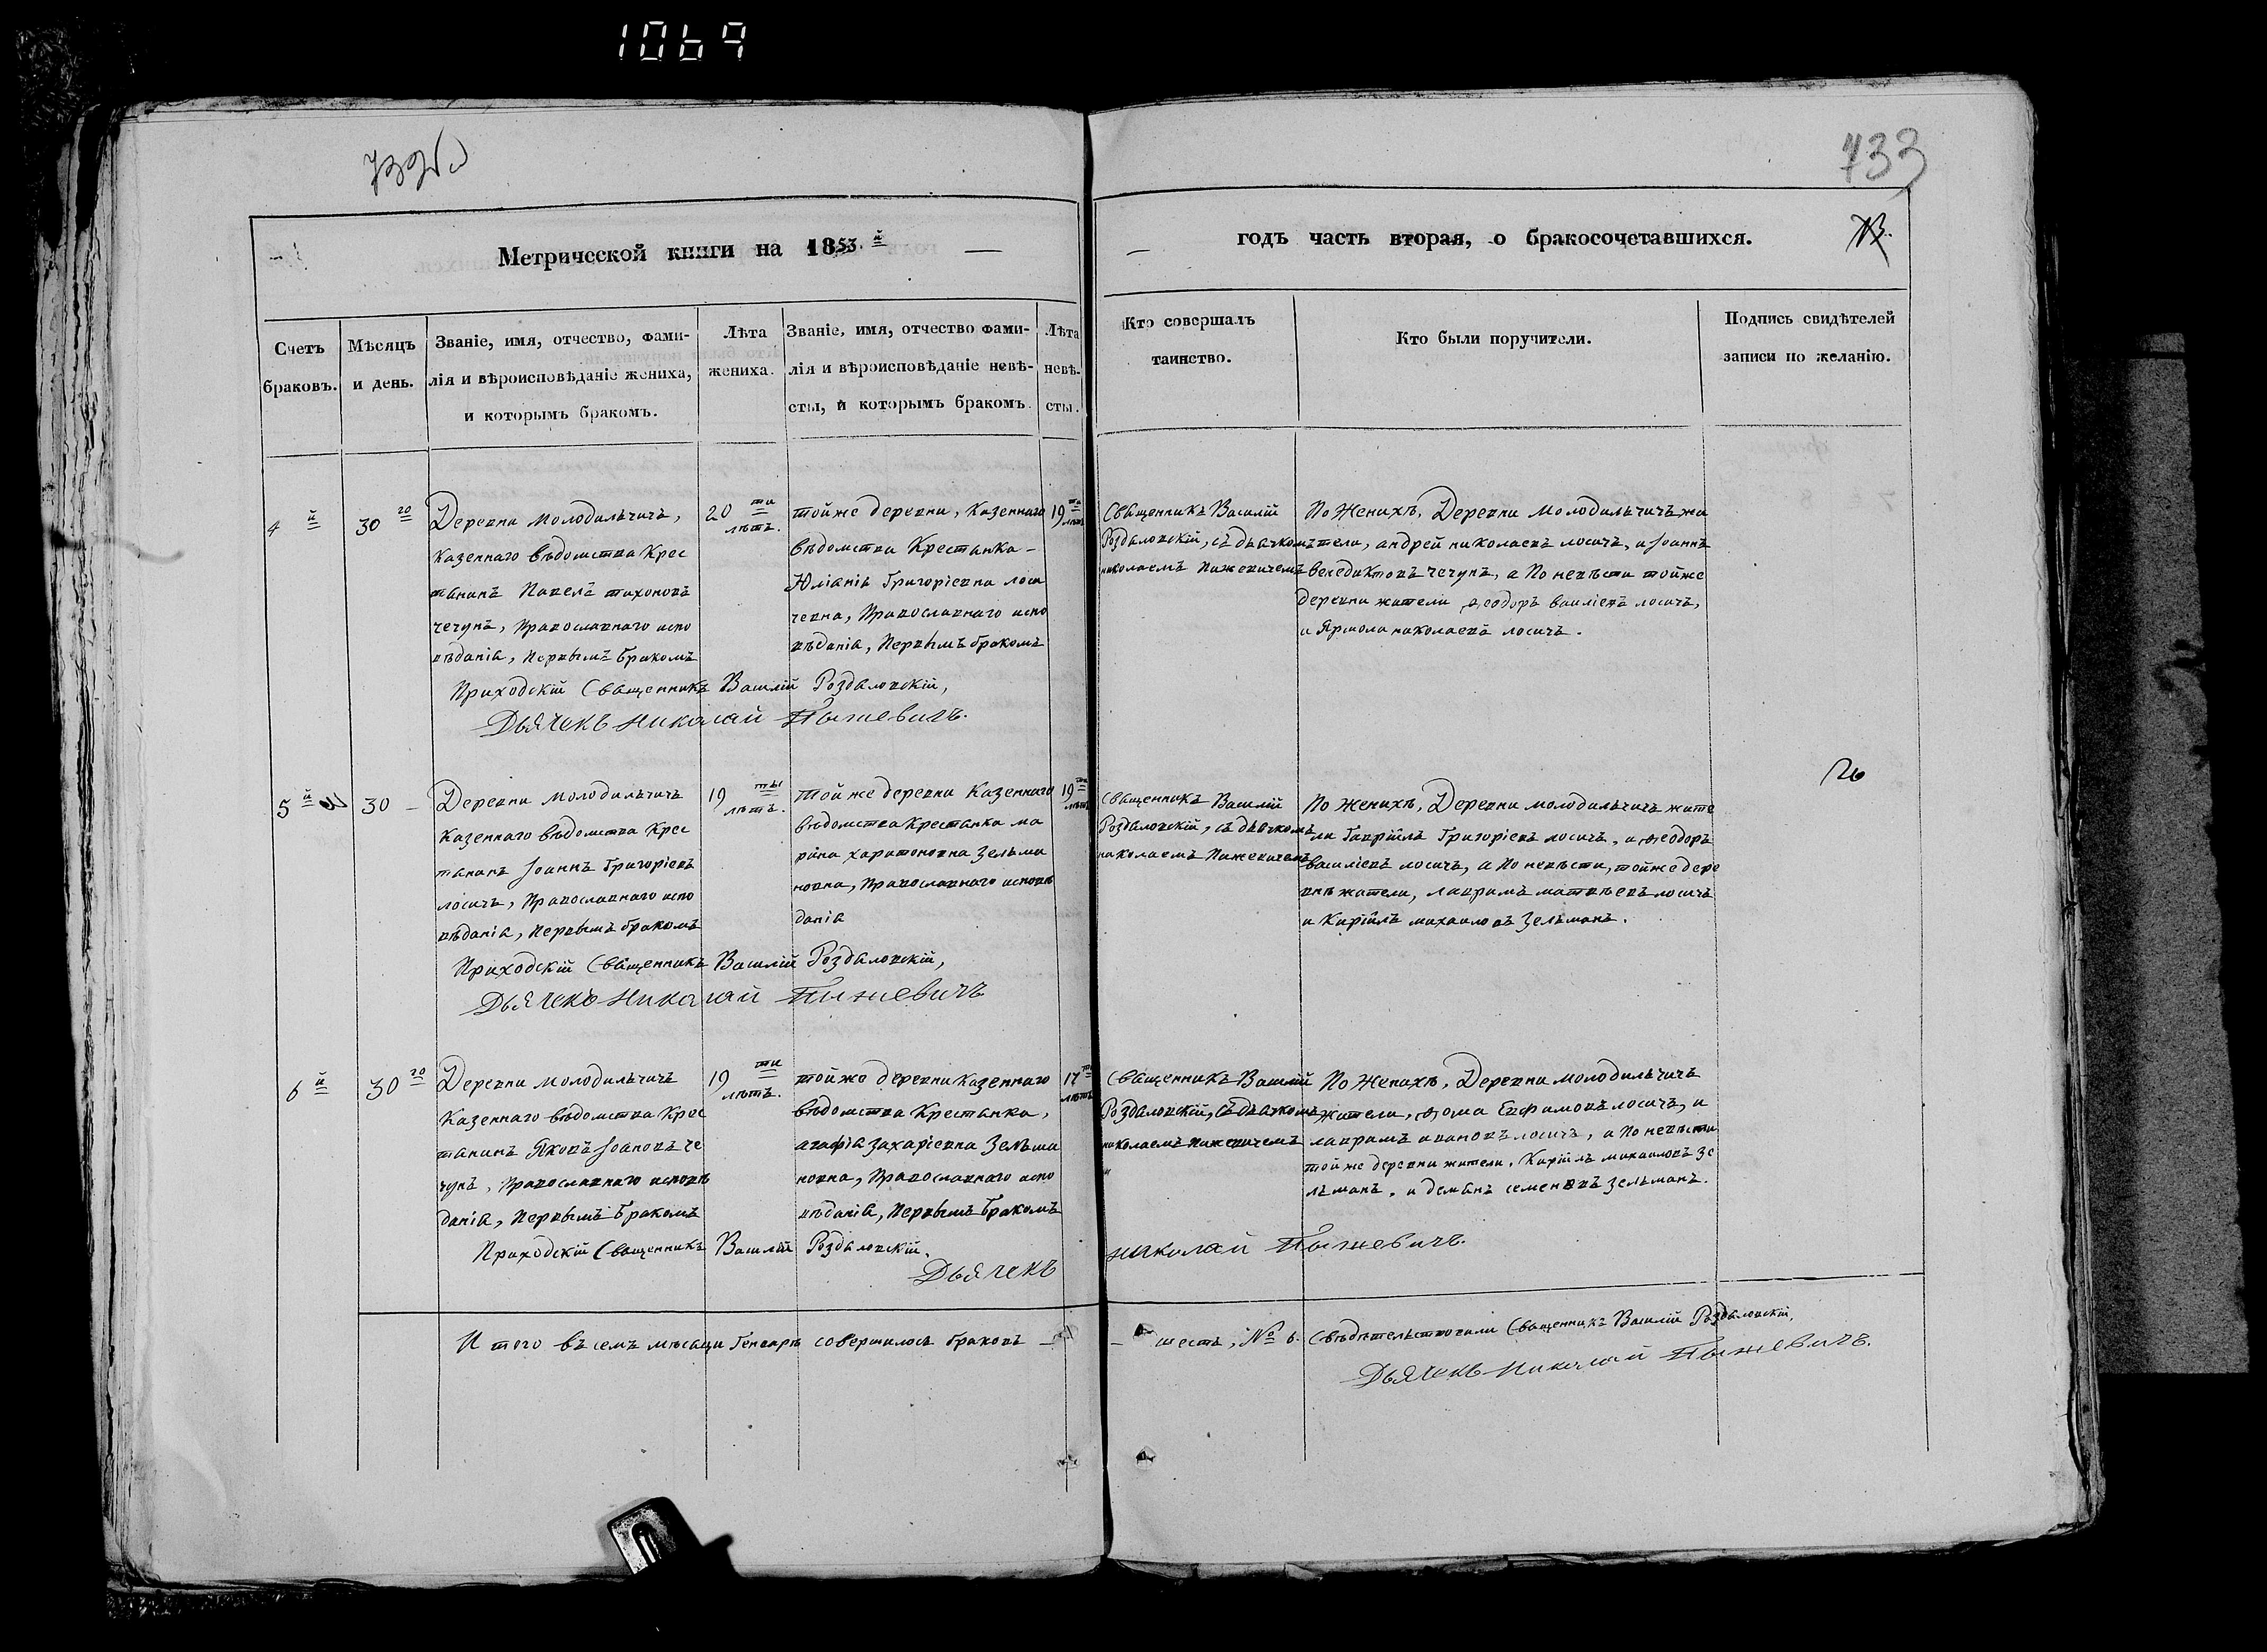 1069
733
Метрической книги на 1853й
годъ часть вторая, о бракосочетавшихся.
Счетъ
браковъ.
Мѣсяцъ
и день.
Званіе, имя, отчество, фами-
лія и вѣроисповѣданіе жениха,
и которымъ бракомъ.
Лѣта
жениха.
Званіе, имя, отчество фами-
лія и вѣроисповѣданіе невѣ-
сты, и которымъ бракомъ.
Лѣта
невѣ-
сты.
Кто совершалъ
таинство.
Кто были поручители.
Подпись свидѣтелей
записи по желанію.
4й
30го
Деревни Молодильчичъ,
Казеннаго вѣдомства Крес
тянинъ Павелъ тихоновъ
чечунъ, Православнаго испо
вѣданія, Первымъ бракомъ
20ти
лѣтъ.
тойже деревни, Казеннаго
вѣдомства Крестянка -
Юліанія Григоріевна лоси
чевна, Православнаго испо
вѣданія, Первымъ бракомъ
19ти
лѣтъ
Священникъ Василій
Роздаловскій, съ дьячкомъ
николаемъ Пижевичемъ
По Женихѣ, Деревни Молодильчичъ жи
тели, андрей николаевъ лосичъ, и Іоаннъ
венедиктовъ чечунъ, а По невѣсти тойже
деревни жители ѳеодоръ василіевъ лосичъ,
и Ярмола николаевъ лосичъ.
Приходскій Священникъ Василій Роздаловскій,
Дьячекъ Николай Пыжевичъ.
5й
30 -
Деревни Молодильчичъ
Казеннаго вѣдомства Крес
тянинъ Іоаннъ Григоріевъ
лосичъ, Православнаго испо
вѣданія, Первымъ бракомъ
19ть
лѣтъ.
Той же деревни Казеннаго
вѣдомства Крестянка ма
ріна харитоновна Зельма
новна, Православнаго исповѣ
данія
19ти
лѣтъ
Священникъ Василій
Роздаловскій, съ дьячкомъ
николаемъ Пижевичемъ
По Женихѣ, Деревни молодильчичъ жите
ли Гавріилъ Григоріевъ лосичъ, и ѳеодоръ
василіевъ лосичъ, а По невѣсти, тойже дере
внѣ жители, лавримъ матвѣевъ лосичъ
и Кирійлъ михаиловъ Зельманъ.
Приходскій Священникъ Василій Роздаловскій,
Дьячекъ Николай Пыжевичъ
6й
30го
Деревни Молодильчичъ
Казеннаго вѣдомства Крес
тянинъ Яковъ Іоановъ че
чунъ, Православнаго исповѣ
данія, Первымъ бракомъ
19ти
лѣтъ.
тойже деревни Казеннаго
вѣдомства Крестянка,
агафія Захаріевна Зельма
новна, Православнаго испо
вѣданія, Первымъ бракомъ
17ти
лѣтъ
Священникъ Василій
Роздаловскій, съ дьячкомъ
николаемъ Пижевичемъ
По Женихѣ, Деревни Молодильчичъ
жители, ѳома Евфимовъ лосичъ, и
лавримъ ивановъ лосичъ, а По невѣсти
той же деревни жители, Кирійлъ михаиловъ Зе
льманъ, и демянъ семеновъ Зельманъ.
Приходскій Священникъ Василій Роздаловскій.
Дьячекъ Николай Пыжевичъ.
И того въ семъ мѣсяци Генварѣ совершилось браковъ —
— шесть, № 6. Свѣдѣтельствовали Священникъ Василій Роздаловскій,
Дьячекъ Николай Пыжевичъ.